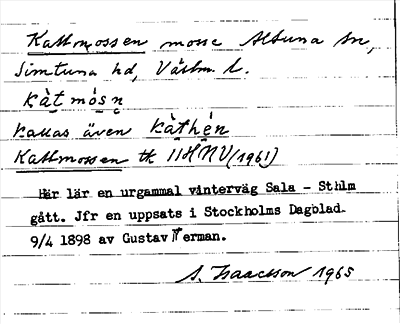 Kattmossen mosse Altuna sn,
Simtuna hd, Västm. l.
kàt mós n̥
kallas även kàthén
Kattmossen tk 11H NV (1961)
Här lär en urgammal vinterväg Sala - Sthlm
gått. Jfr en uppsats i Stockholms Dagblad
9/4 1898 av Gustav erman.
S. Isaacsson 1965